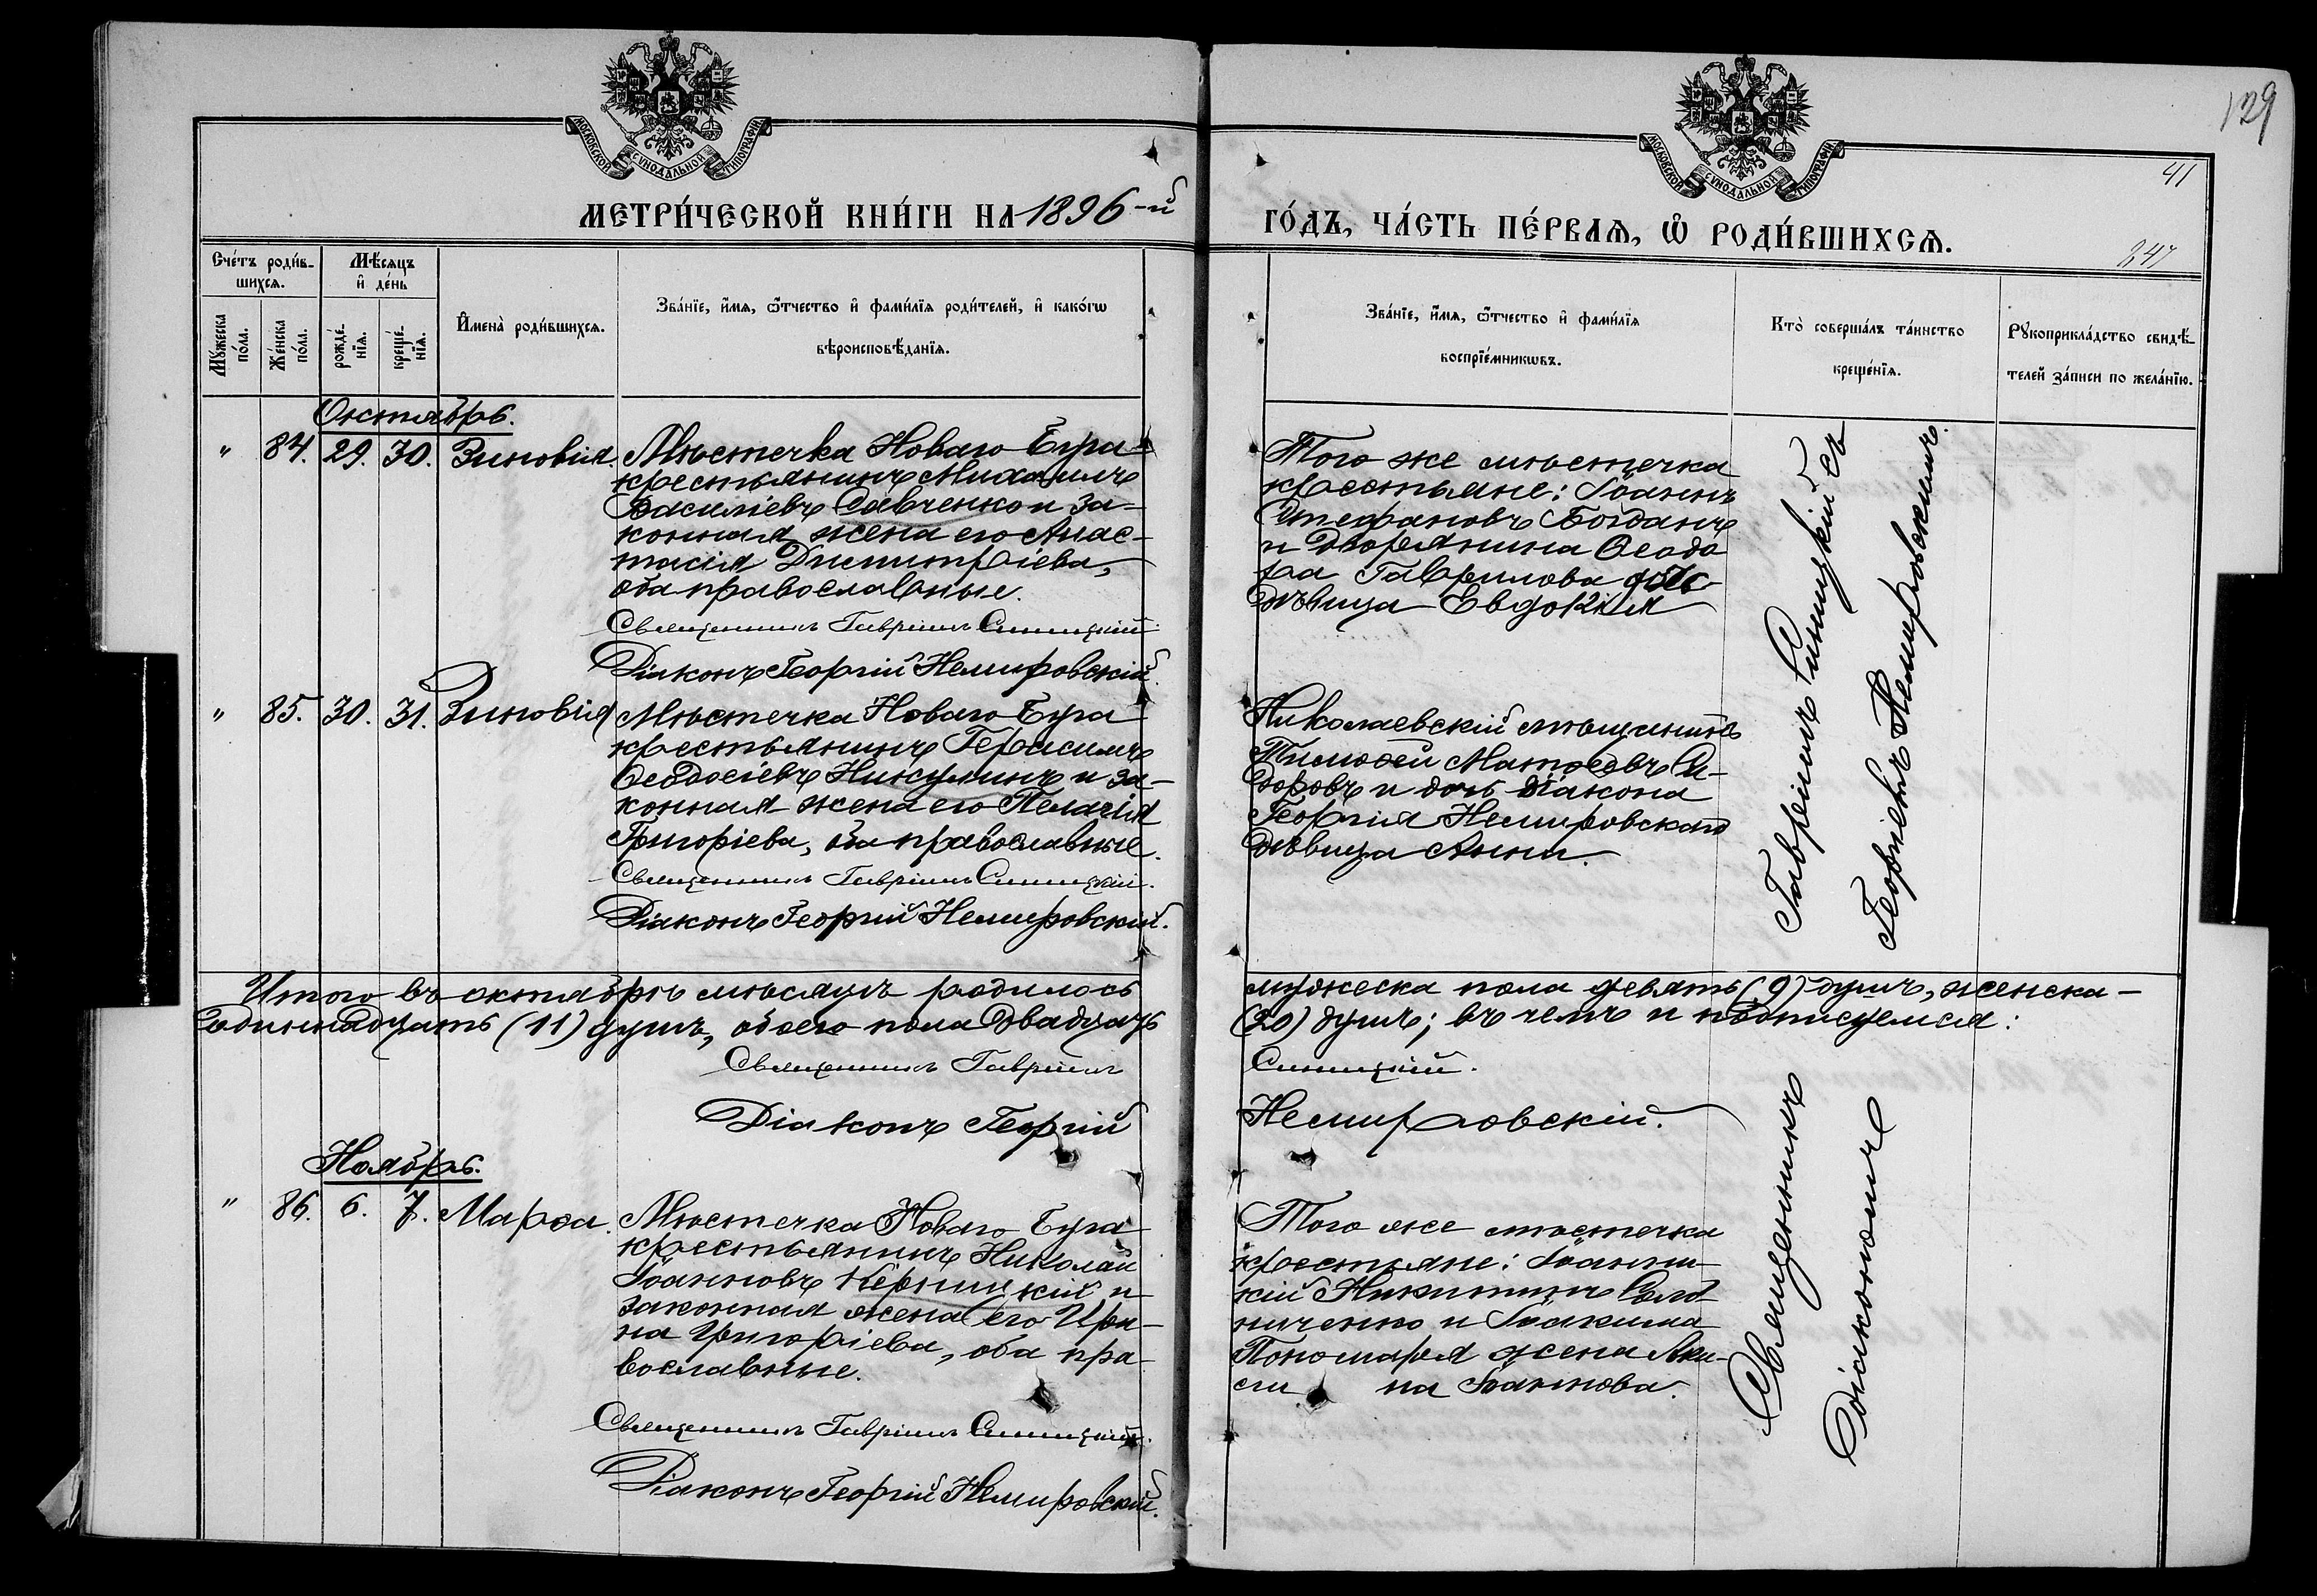 129
41
247
МОСКОВСКОЙ СѴНОДАЛЬНОЙ ТИПОГРАФІИ
МОСКОВСКОЙ СѴНОДАЛЬНОЙ ТИПОГРАФІИ
МЕТРИ́ЧЕСКОЙ КНИ́ГИ НА 1896-й
ГО́ДЪ, ЧА́СТЬ ПЕ́РВАЯ, Ѽ РОДИ́ВШИХСЯ.
Сче́тъ роди́в-
шихся.
Мѣ́сяцъ
и҆ де́нь
Мꙋ́жеска
по́ла.
Же́нска
по́ла.
рожде́-
нїя.
креще́-
нїя.
И҆мена̀ роди́вшихся.
Зва́нїе, и҆́мя, ѻ҆́тчество и҆ фами́лїя роди́телей, и҆ како́гѡ
вѣроисповѣ́данїя.
Зва́нїе, и҆́мя, ѻ҆́тчество и҆ фами́лїя
воспрїе́мникѡвъ.
Кто̀ соверша́лъ та́инство
креще́нїя.
Рꙋкоприкла́дство свидѣ́-
телей за́писи по жела́нїю.
Октябрь.
" 84. 29. 30. Зиновія.
Мѣстечка Новаго Буга
крестьянинъ Михаилъ
Василіевъ Савченко и за-
конная жена его Анас-
тасія Димитріева,
оба православные.
Священникъ Гавріилъ Синицкій
Діаконъ Георгій Немировскій.
Того же мѣстечка
крестьяне: Іоаннъ
Стефановъ Богданъ
и дворянина Ѳеодо
ра Гаврилова дочь
дѣвица Евдокія
" 85. 30. 31. Зиновія
Мѣстечка Новаго Буга
крестьянинъ Герасимъ
Ѳеодосіевъ Никулинъ и за-
конная жена его Пелагія
Григоріева, оба православные.
Священникъ Гавріилъ Синицкій.
Діаконъ Георгій Немировскій.
Николаевскій мѣщанинъ
Тимоѳей Матѳеевъ Си-
доровъ и дочь діакона
Георгія Немировскаго
дѣвица Анна.
Гавріилъ Синицкій съ
Георгіемъ Немировскимъ.
Итого въ октябрѣ мѣсяцѣ родилось
мужеска пола девять (9) душъ, женска-
одиннадцать (11) душъ, обоего пола двадцать
(20) душъ; въ чемъ и подписуемся:
Священникъ Гавріилъ
Синицкій.
Діаконъ Георгій
Немировскій.
Ноябрь.
" 86. 6. 7. Марѳа.
Мѣстечка Новаго Буга
крестьянинъ Николай
Іоанновъ Керницкій и
законная жена его Ири-
на Григоріева, оба пра-
вославные.
Священникъ Гавріилъ Синицкій.
Діаконъ Георгій Немировскій.
Того же мѣстечка
крестьяне: Іоанни-
кій Никитинъ
и Іоакима
Пономаря жена
на Іоаннова.
Священникъ
діакономъ